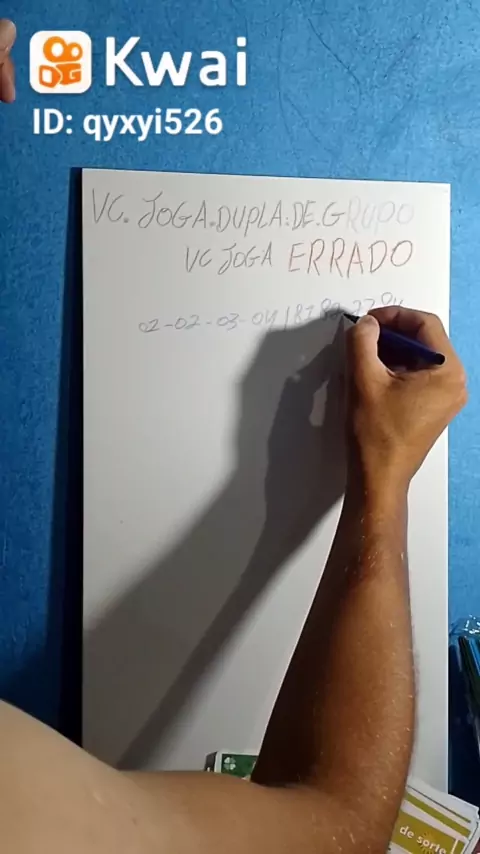 Kwai
ID: qyxyi526
VC. JOGA.DUPLA:DE.GRUPO
VC JOGA ERRADO
02-02-03-04
de sorte